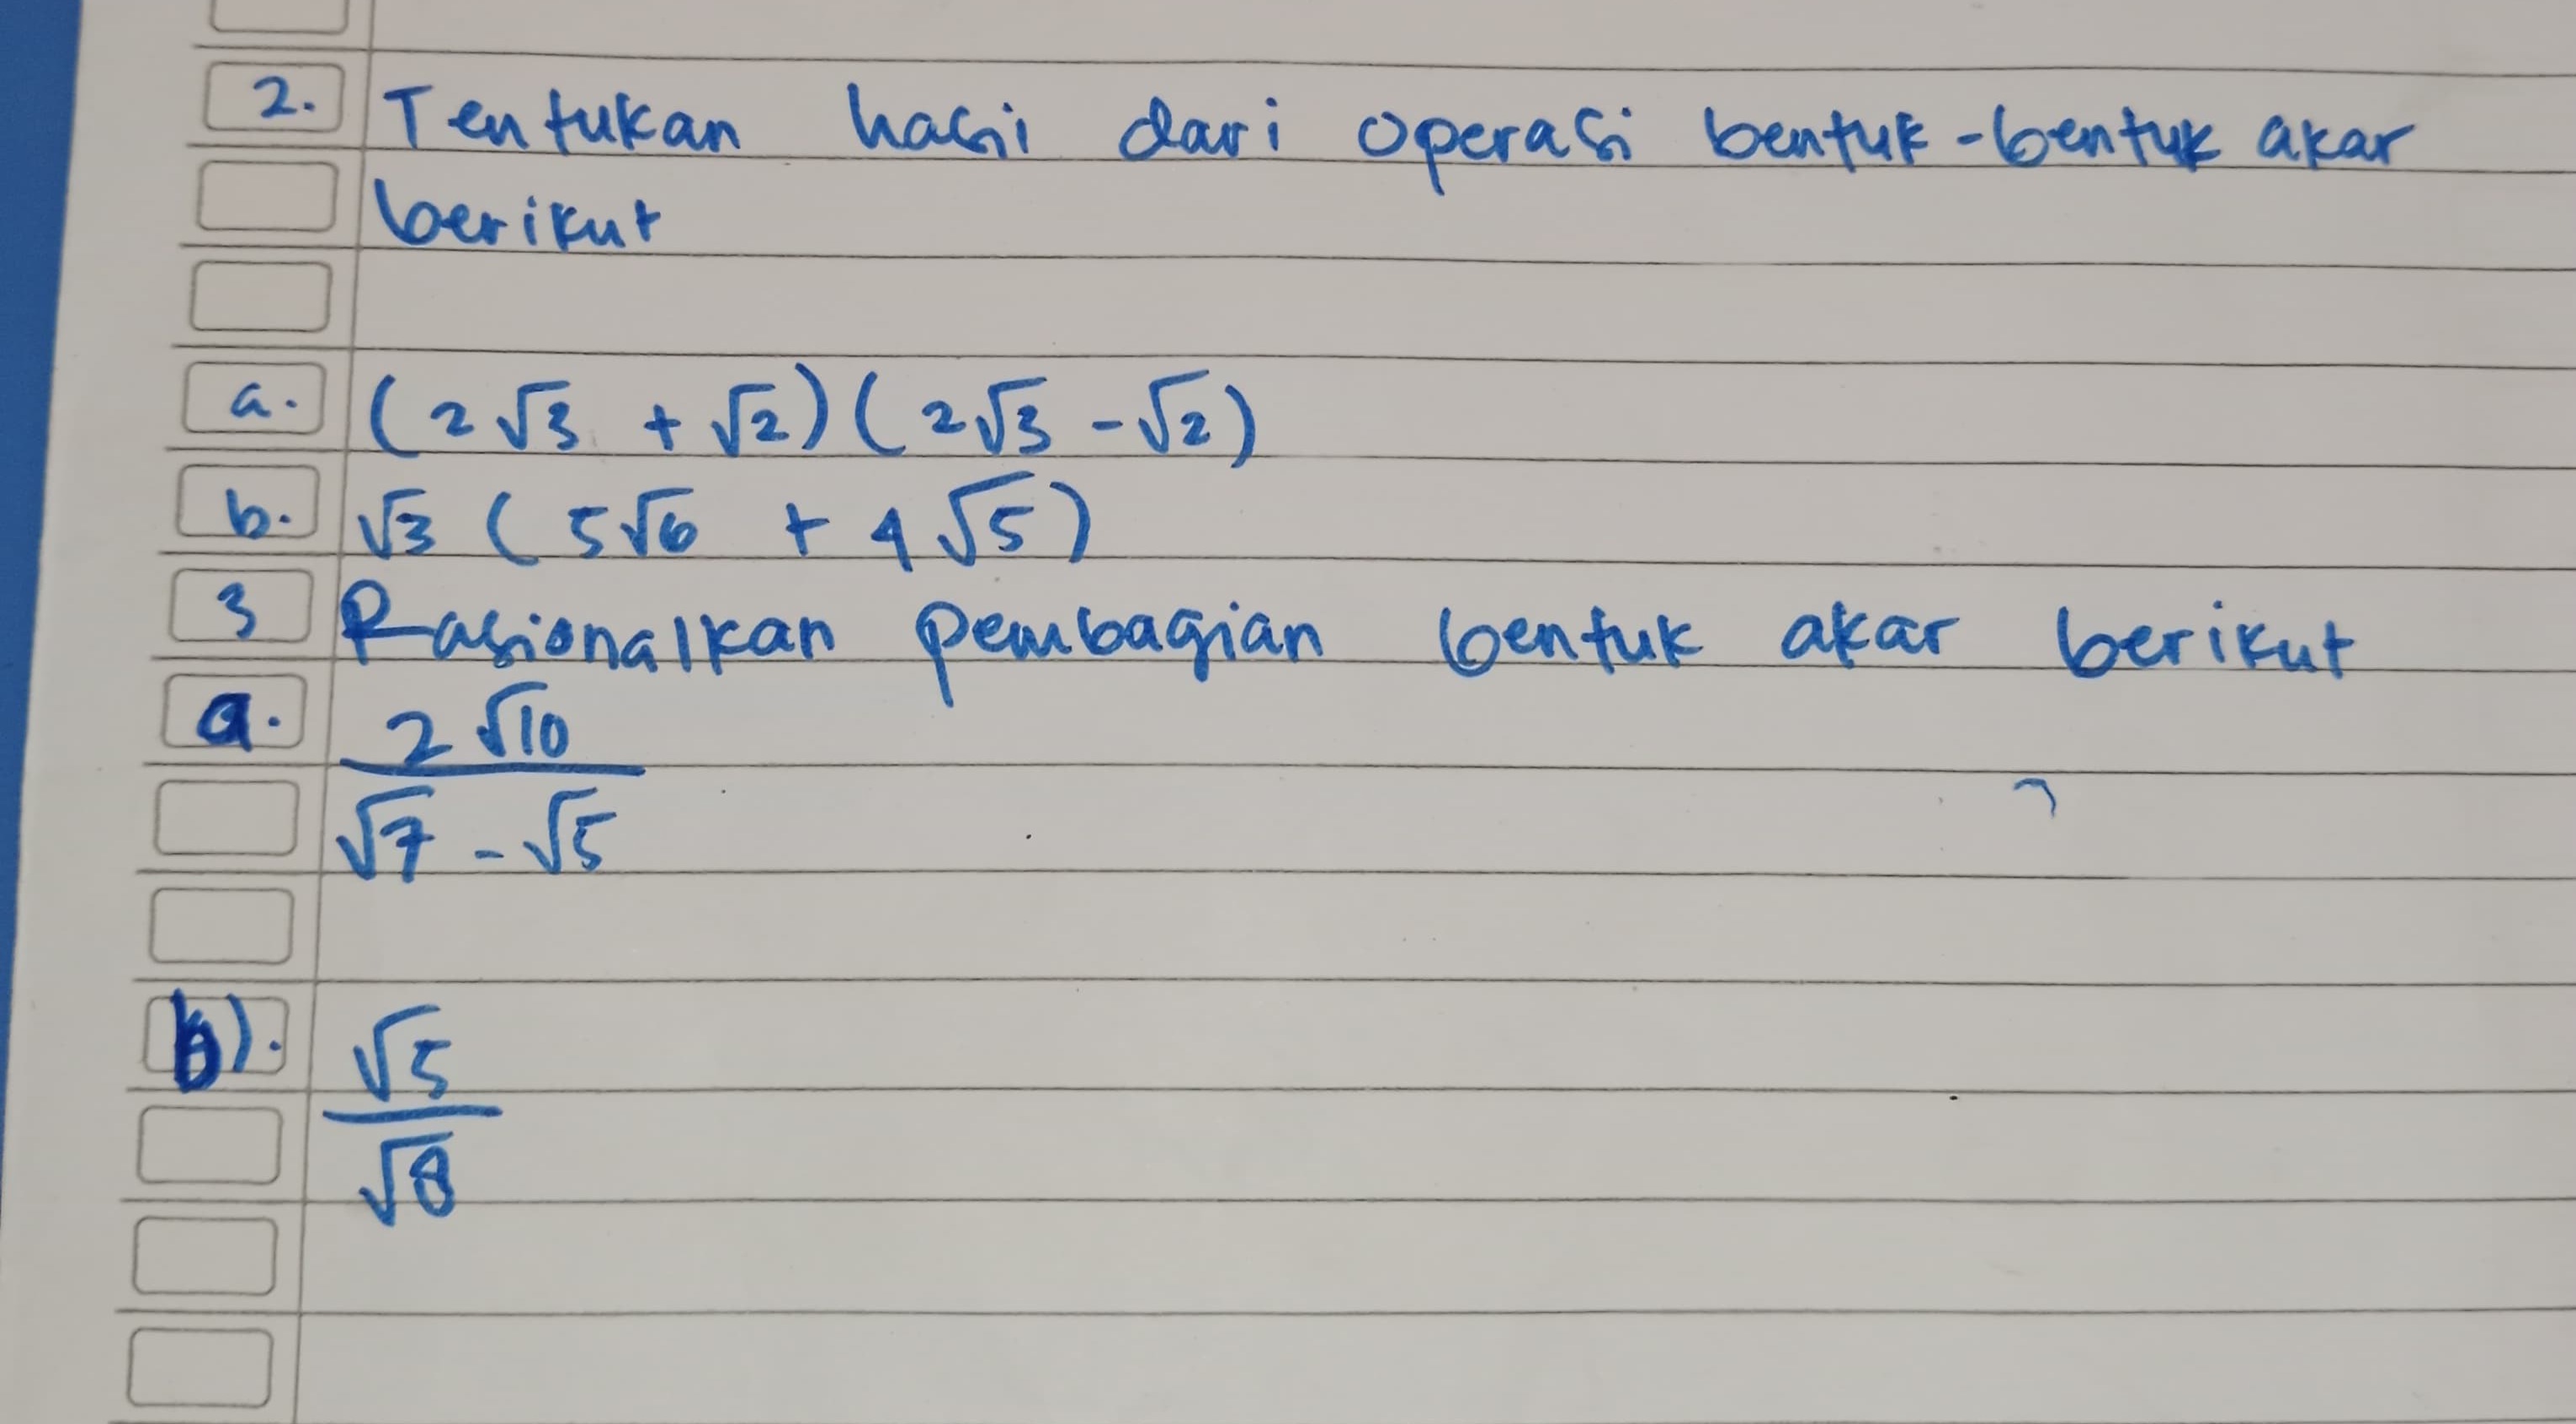 2. Tentukan hasil dari operasi bentuk-bentuk akar
berikut
a. (2√3 + √2)(2√3 - √2)
b. √3 (5√6 + 4√5)
3 Rasionalkan pembagian bentuk akar berikut
a. 2√10
√7 - √5
b). √5
√8